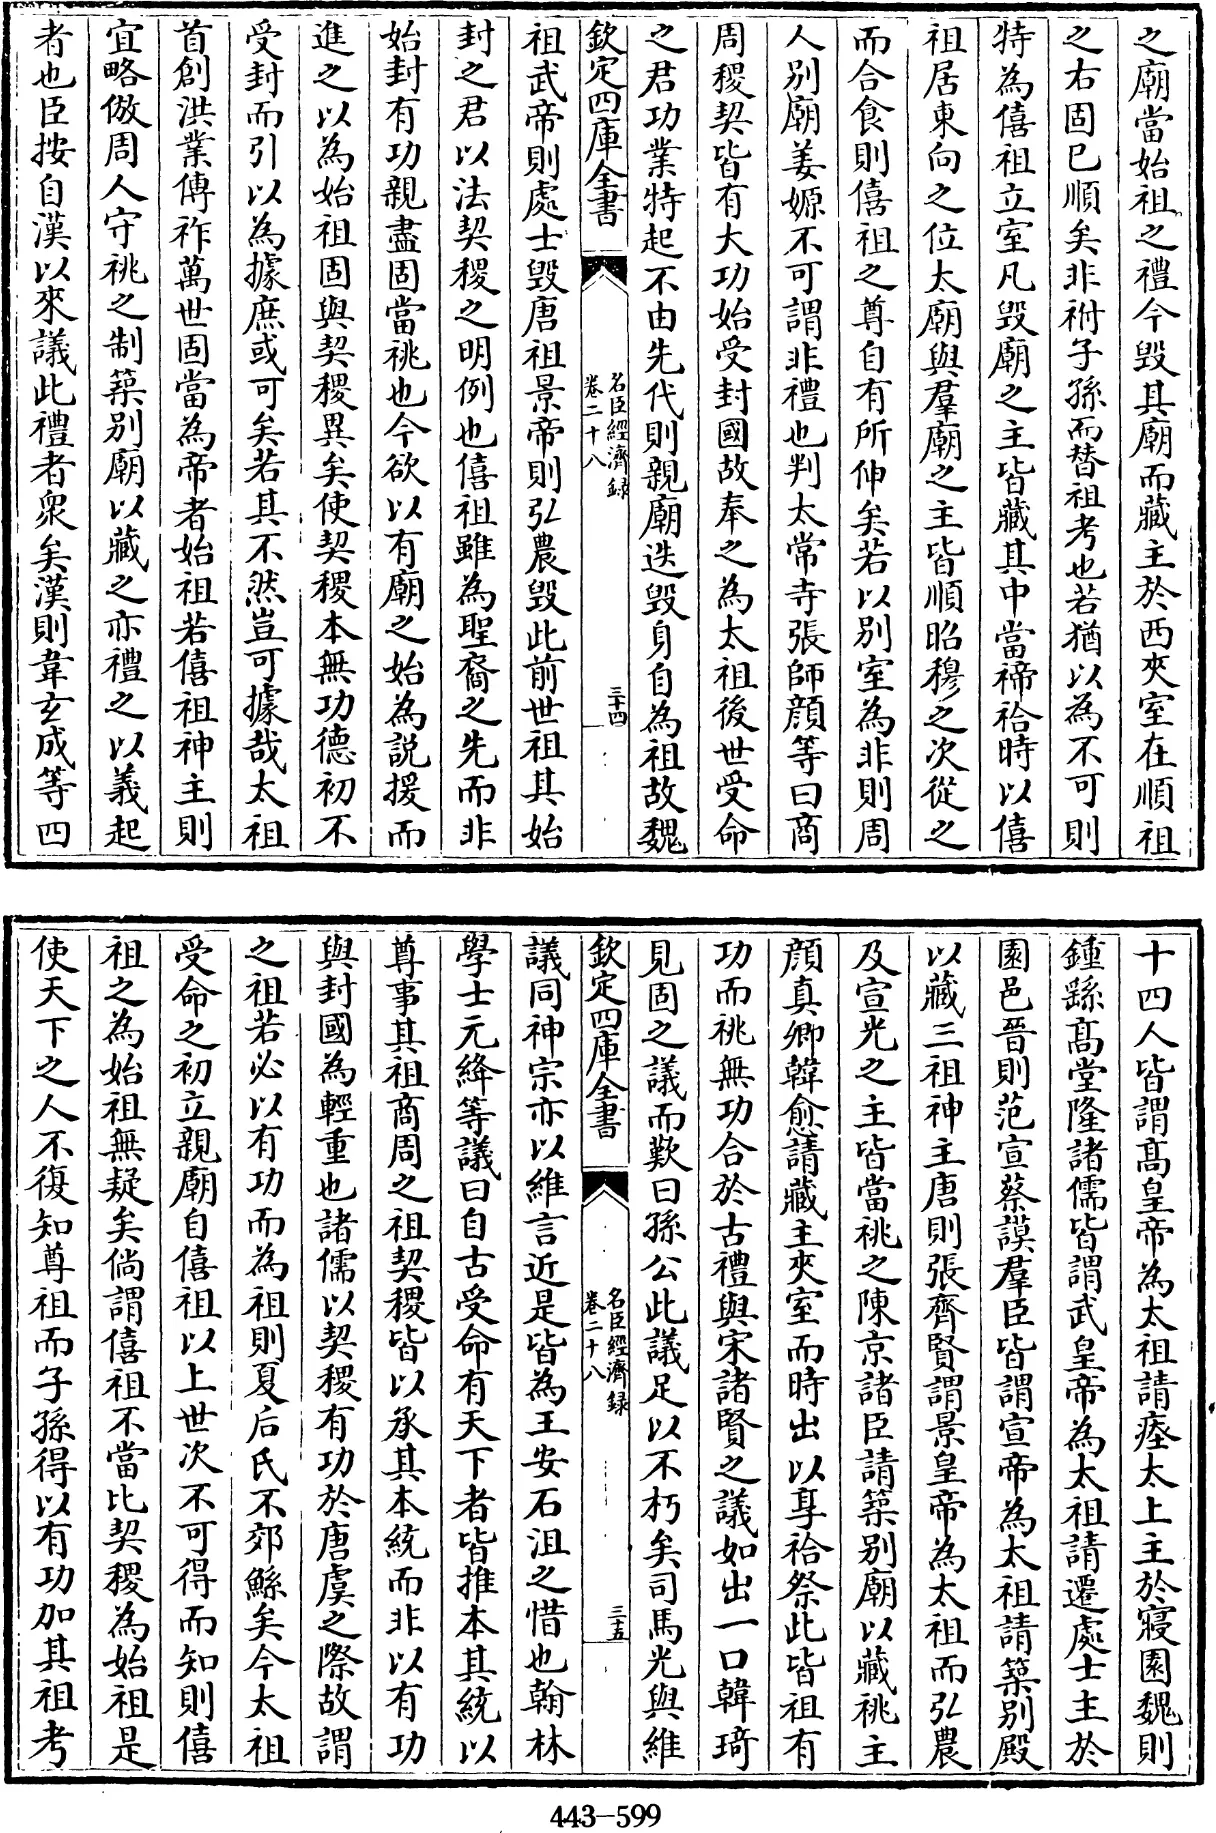 之廟當始祖之禮今毁其廟而藏主於西夾室在順祖
之右固已順矣非祔子孫而替祖考也若猶以為不可則
特為僖祖立室凡毁廟之主皆藏其中當禘祫時以僖
祖居東向之位太廟與羣廟之主皆順昭穆之次從之
而合食則僖祖之尊自有所伸矣若以别室為非則周
人别廟姜嫄不可謂非禮也判太常寺張師顔等曰商
周稷契皆有大功始受封國故奉之為太祖後世受命
之君功業特起不由先代則親廟迭毁身自為祖故魏
欽定四庫全書
名臣經濟録
卷二十八
三十四
祖武帝則處士毁唐祖景帝則弘農毁此前世祖其始
封之君以法契稷之明例也僖祖雖為聖裔之先而非
始封有功親盡固當祧也今欲以有廟之始為説援而
進之以為始祖固與契稷異矣使契稷本無功德初不
受封而引以為據庶或可矣若其不然豈可據哉太祖
首創洪業傳祚萬世固當為帝者始祖若僖祖神主則
宜略倣周人守祧之制築别廟以藏之亦禮之以義起
者也臣按自漢以來議此禮者衆矣漢則韋玄成等四
十四人皆謂髙皇帝為太祖請瘞太上主於寢園魏則
鍾繇髙堂隆諸儒皆謂武皇帝為太祖請遷處士主於
園邑晉則范宣蔡謨羣臣皆謂宣帝為太祖請築别殿
以藏三祖神主唐則張齊賢謂景皇帝為太祖而弘農
及宣光之主皆當祧之陳京諸臣請築别廟以藏祧主
顔真卿韓愈請藏主夾室而時出以享祫祭此皆祖有
功而祧無功合於古禮與宋諸賢之議如出一口韓琦
見固之議而歎曰孫公此議足以不朽矣司馬光與維
欽定四庫全書
名臣經濟録
卷二十八
三十五
議同神宗亦以維言近是皆為王安石沮之惜也翰林
學士元絳等議曰自古受命有天下者皆推本其統以
尊事其祖商周之祖契稷皆以承其本統而非以有功
與封國為輕重也諸儒以契稷有功於唐虞之際故謂
之祖若必以有功而為祖則夏后氏不郊鯀矣今太祖
受命之初立親廟自僖祖以上世次不可得而知則僖
祖之為始祖無疑矣倘謂僖祖不當比契稷為始祖是
使天下之人不復知尊祖而子孫得以有功加其祖考
443-599